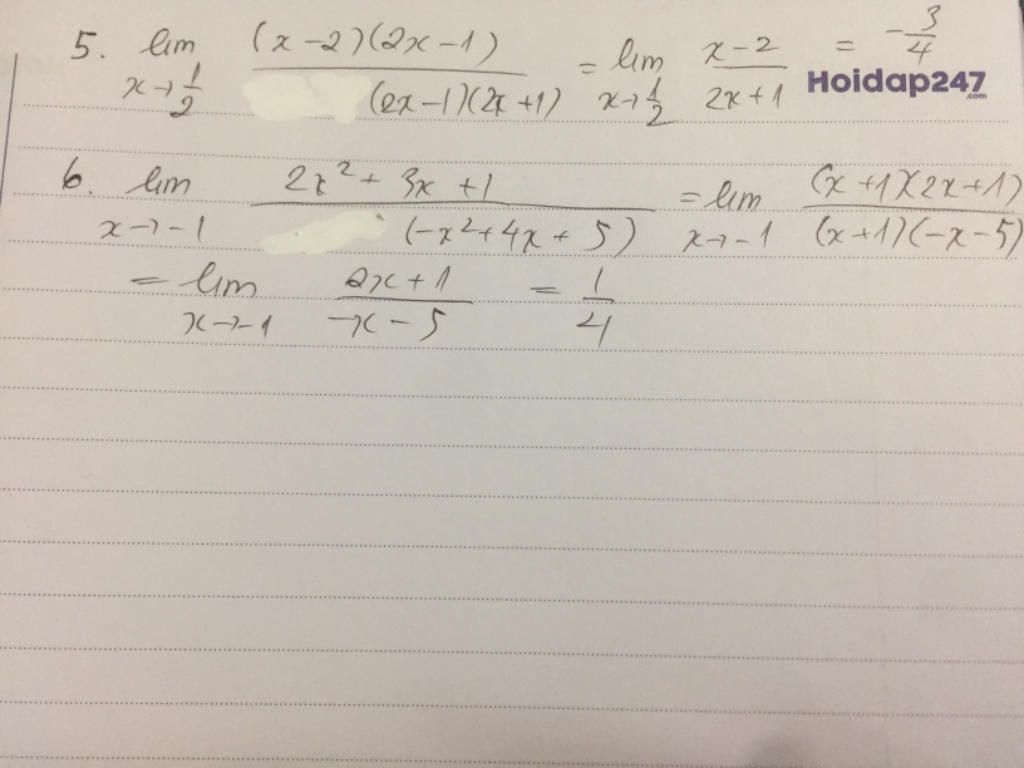 5. lim x→1/2 (x-2)(2x-1) / (2x-1)(2x+1) = lim x→1/2 x-2 / 2x+1 = -3/4
Hoidap247.com
6. lim x→-1 2x²+3x+1 / (-x²+4x+5) = lim x→-1 (x+1)(2x+1) / (x+1)(-x-5)
= lim x→-1 2x+1 / -x-5 = 1/4